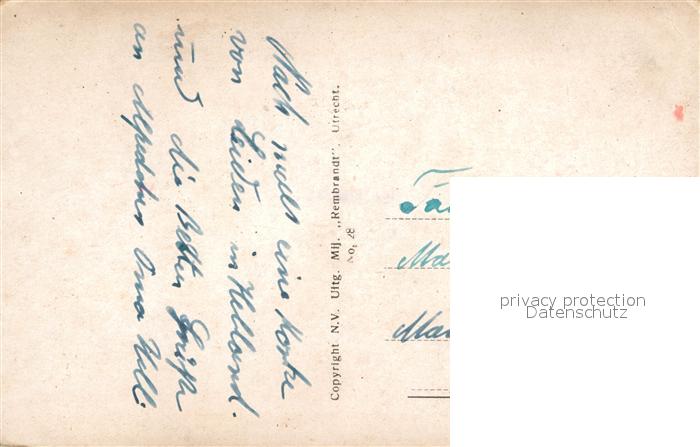 Noch eine Karte
von Leiden in Holland.
und die Besten Grüße
an Oma
Copyright N.V. Uitg. Mij. „Rembrandt”, Utrecht.
No. 28
privacy protection
Datenschutz